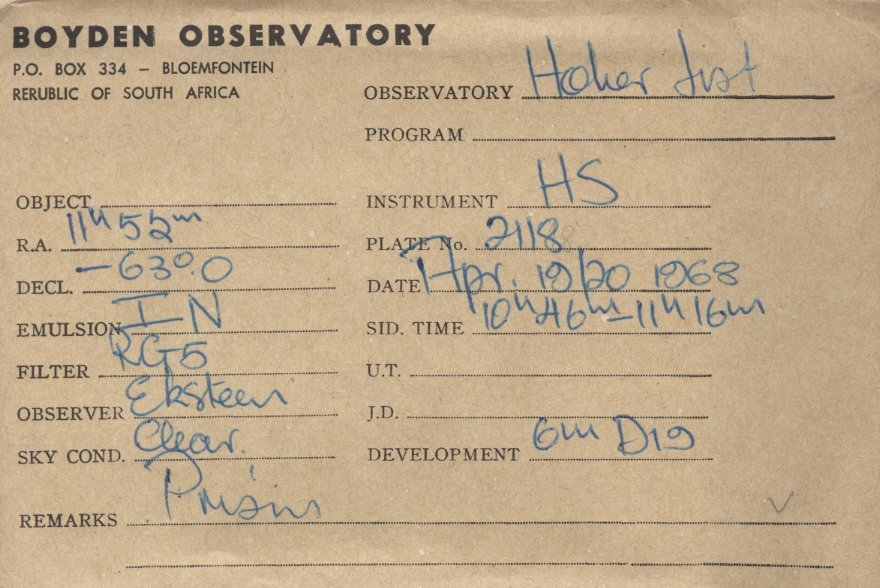 BOYDEN OBSERVATORY
P.O. BOX 334 – BLOEMFONTEIN
RERUBLIC OF SOUTH AFRICA
OBSERVATORY Hoher List
PROGRAM
OBJECT
INSTRUMENT HS
R.A. 11h 52m
PLATE No. 2118
DECL. -63°.0
DATE Apr. 19/20 1968
EMULSION IN
SID. TIME 10h46m-11h16m
FILTER RG5
U.T.
OBSERVER Eksteen
J.D.
SKY COND. Clear.
DEVELOPMENT 6m D19
REMARKS